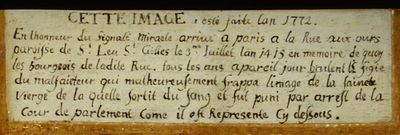 CETTE IMAGE a esté faite lan 1772.
En lhonneur du Signalé Miracle arrivé a paris a la Rue aux ours
paroisse de St. Leu St. Gilles le 3me Juillet lan 1415 en memoire de quoy
les bourgeois de ladite Rue, tous les ans apareil jour brulent lefigie
du malfaicteur qui malheureusement frappa limage de la sainete
vierge de la quelle sortit du sang et fut puni par arrest de la
Cour de parlement Come il est Represente Cy dessous.